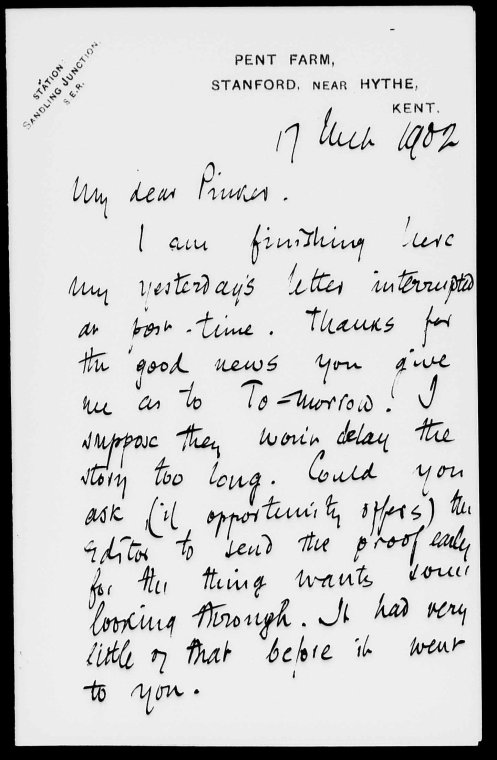 STATION
SANDLING JUNCTION.
S.E.R.
PENT FARM,
STANFORD, NEAR HYTHE,
KENT.
17 Mch 1902
My dear Pinker.
I am finishing here
my yesterday's letter interrupted
at post-time. Thanks for
the good news you give
me as to To=morrow. I
suppose they won't delay the
story too long. Could you
ask (if opportunity offers) the
Editor to send the proof early
for the thing wants some
looking through. It had very
little of that before it went
to you.